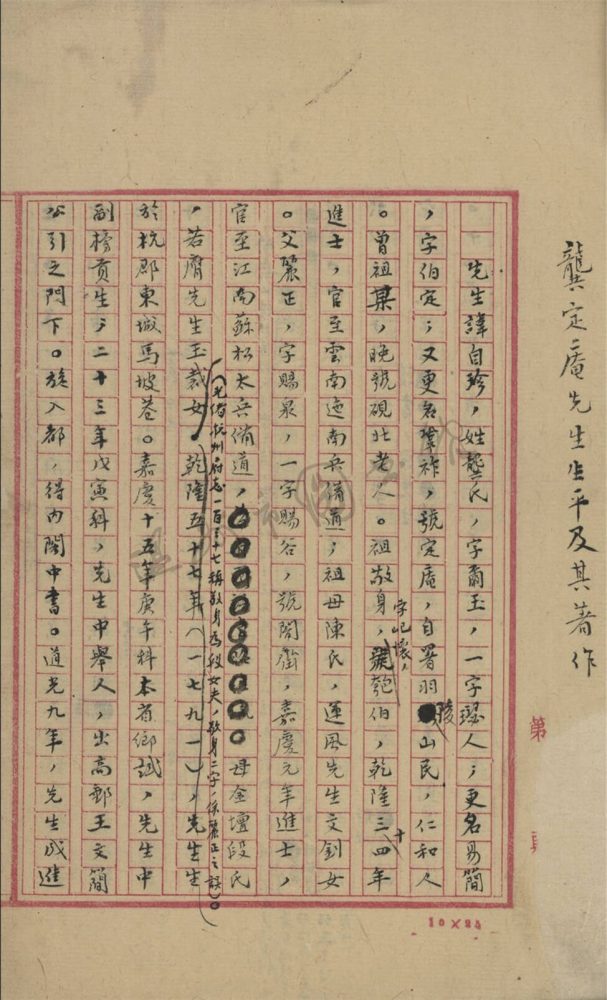 龔定庵先生生平及其著作
先生諱自珍，姓龔氏，字爾玉，一字璱人；更名易簡
，字伯定；又更名鞏祚，號定庵，自署羽陵山民，仁和人
。曾祖某，晚號硯北老人。祖敬身，字屺懷，號匏伯，乾隆三十四年
進士，官至雲南迤南兵備道；祖母陳氏，運風先生文釗女
。父麗正，字賜泉，一字賜谷，號闇齋，嘉慶元年進士，
官至江南蘇松太兵備道，母金壇段氏
，若膺先生玉裁女
（光緒杭州府志一百三十七稱敬身為段女夫，敬身二字，係麗正之誤）。
乾隆五十七年（一七九一），先生生
於杭郡東城馬坡巷。嘉慶十五年庚午科本省鄉試，先生中
副榜貢生；二十三年戊寅科，先生中舉人，出高郵王文簡
公引之門下。旋入都，得內閣中書。道光九年，先生成進
第
頁
10×25